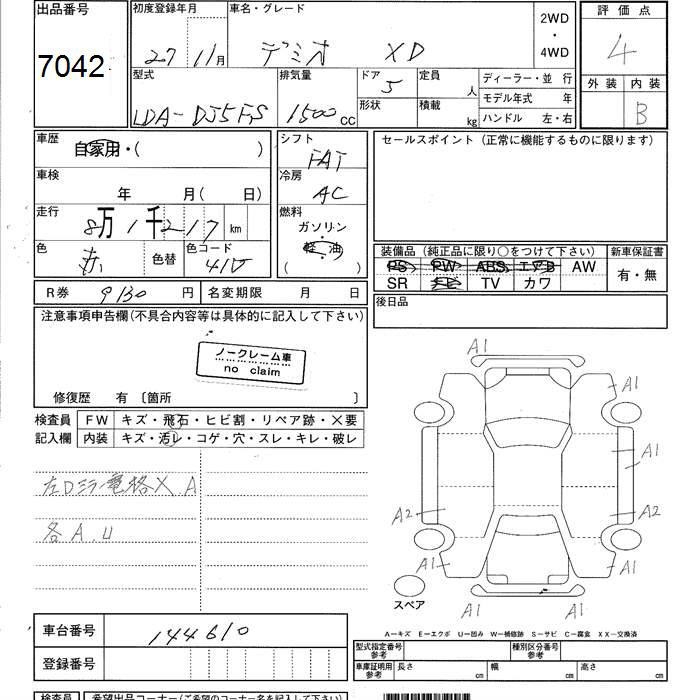 出品番号
7042
初度登録年月
27 11月
車名・グレード
デミオ XD
2WD
・
4WD
評価点
4
型式
LDA-DJ5FS
排気量
1500cc
ドア
5
形状
定員
人
積載
kg
ディーラー・並 行
モデル年式 年
ハンドル 左・右
外装
内装
B
車歴
自家用・( )
車検
年 月( 日)
走行
8万1千217km
色
赤
色替
色コード
41V
シフト
FAT
冷房
AC
燃料
ガソリン
・
軽・油
( )
セールスポイント (正常に機能するものに限ります)
装備品 (純正品に限り○をつけて下さい)
PS PW ABS エアB AW
SR TV カワ
新車保証書
有・無
後日品
R券 9130円
名変期限 月 日
注意事項申告欄(不具合内容等は具体的に記入して下さい)
ノークレーム車
no claim
修復歴 有 〔箇所 〕
検査員
記入欄
FW キズ・飛石・ヒビ割・リペア跡・×要
内装 キズ・汚レ・コゲ・穴・スレ・キレ・破レ
左Dミラー電格X.A
各A.U
A1
A1
A1
A1
A2
A2
A1
A1
A1
A1
スペア
A-キズ E-エクボ U-凹み W-補修跡 S-サビ C-腐食 XX-交換済
車台番号 144610
登録番号
型式指定番号
参考
種別区分番号
参考
車庫証明用
参考
長さ cm
幅 cm
高さ cm
検査員
希望出品コーナー(ご希望のコーナー名を記入下さい)